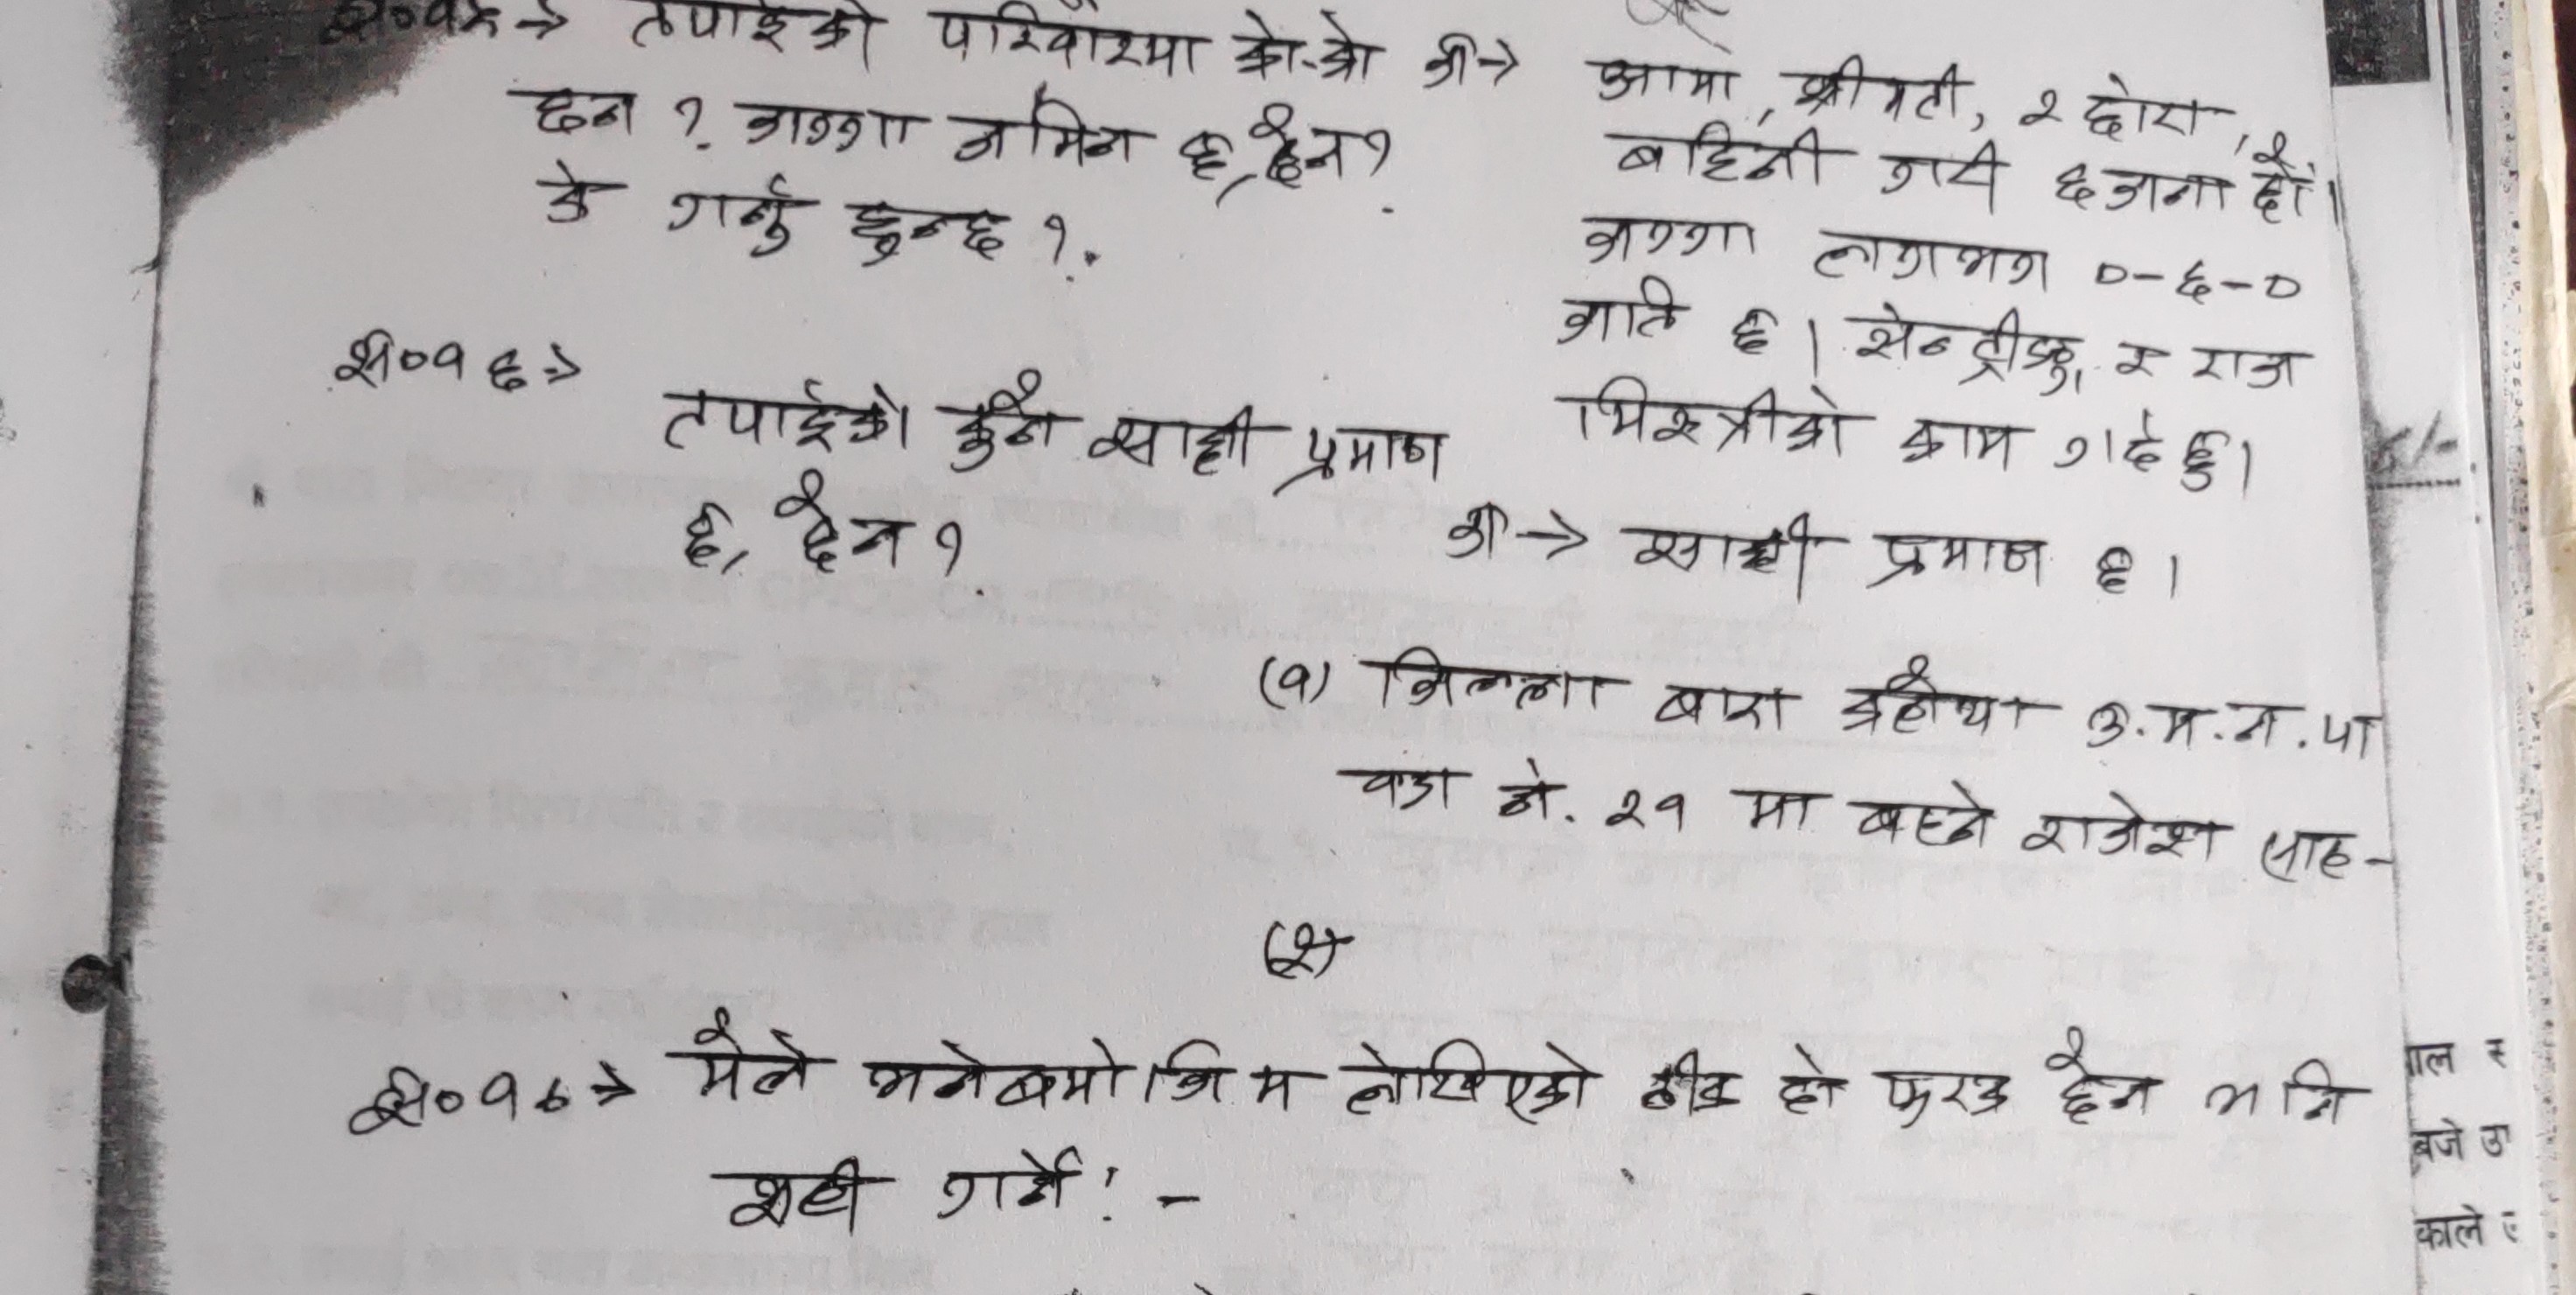 स०१५→ तपाईको परिवारमा को-को
छन ? जग्गा जमिन छ, छैन?
के गर्नु हुन्छ ?
ज→ आमा, श्रीमती, २ छोरा,
बहिनी गरी ६ जना छौं।
जग्गा लगभग ०-६-०
जति छ। सेन्ट्रीङ्ग, र राज
मिस्त्रीको काम गर्दछु।
स०१६→
तपाईको कुनै साक्षी प्रमाण
छ, छैन?
ज→ साक्षी प्रमाण छ।
(१) जिल्ला बारा कलैया उ.म.न.पा
वडा नं. २१ मा बस्ने राजेश साह-
(२)
स०१७→ मैले भनेबमोजिम लेखिएको ठीक हो फरक छैन भनि
सही गर्ने:-
बजे उ
काले